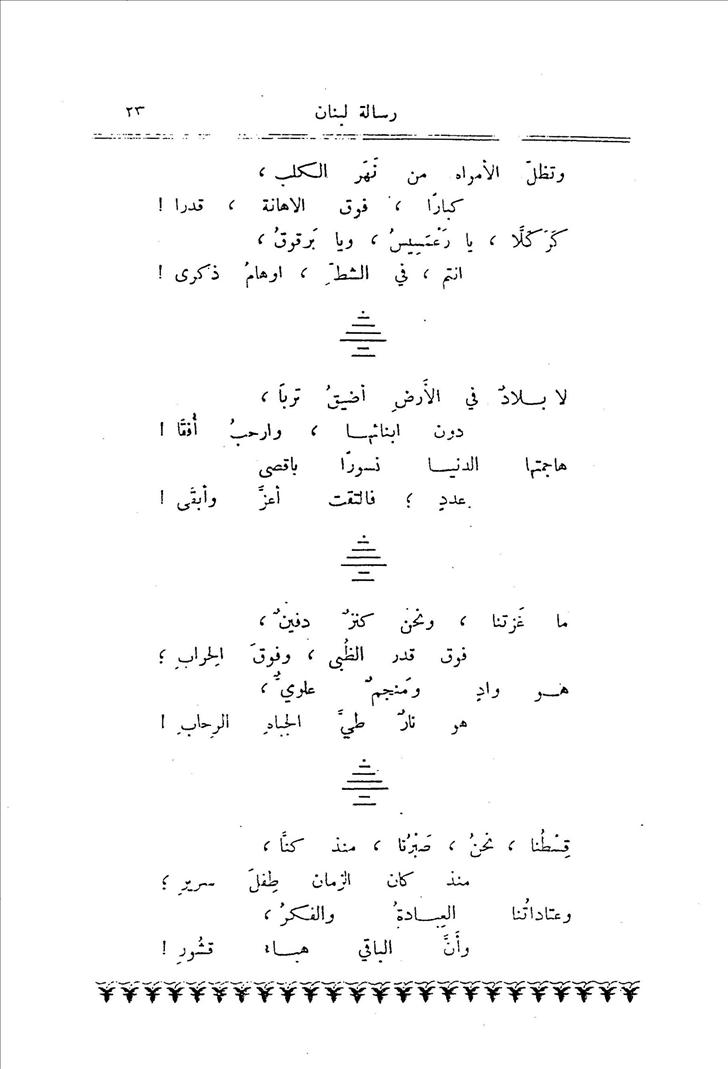 رسالة لبنان ٢٣
وتظلّ الأمواه من نَهَر الكلب ،
كبارًا ، فوق الاهانة ، قدرا !
كَرَكَلَّا ، يا رَعْمَسِيسُ ، ويا بَرقوقُ ،
انتم ، في الشطّ ، اوهامُ ذكرى !
لا بــلادٌ في الأَرضِ أضيقُ تربًا ،
دون ابنائهــا ، وارحبُ أُفقًا !
هاجمتها الدنيــا نسورًا باقصى
عددٍ ؛ فالتقت أعزَّ وأبقَى !
ما غَزتنا ، ونحنُ كنزٌ دفينٌ ،
فوق قدر الظُبى ، وفوقَ الحِرابِ ؛
هــو وادٍ ومَنجمٌ علويٌّ ،
هو نارٌ طيَّ الجباهِ الرِحابِ !
قِسْطُنا ، نحنُ ، صَبْرُنا ، منذ كنَّا ،
منذ كان الزمان طِفلَ سريرٍ ؛
وعتاداتُنا العِبــادةُ والفكرُ ،
وأَنَّ الباقي هبــاءُ قشُورِ !